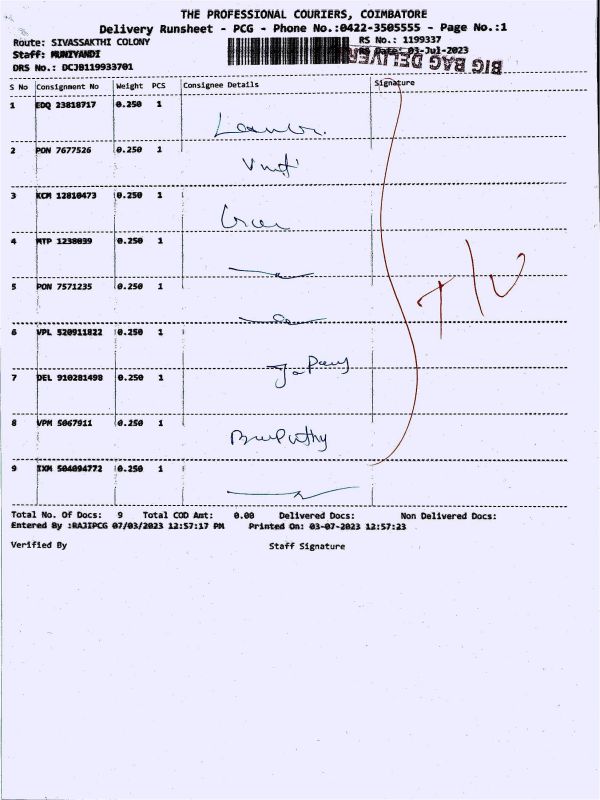 THE PROFESSIONAL COURIERS, COIMBATORE
Delivery Runsheet - PCG - Phone No.:0422-3505555 - Page No.:1
Route: SIVASSAKTHI COLONY RS No.: 1199337
Staff: MUNIYANDI RS Date: 03-Jul-2023
DRS No.: DCJB119933701 BIG BAG DELIVERY
S No Consignment No Weight PCS Consignee Details Signature
1 EDQ 23818717 0.250 1
2 PON 7677526 0.250 1
3 KCM 12810473 0.250 1
4 MTP 1238039 0.250 1
5 PON 7571235 0.250 1
6 VPL 520911822 0.250 1
7 DEL 910281498 0.250 1
8 VPM 5067911 0.250 1
9 IXM 504094772 0.250 1
Total No. Of Docs: 9 Total COD Amt: 0.00 Delivered Docs: Non Delivered Docs:
Entered By :RAJIPCG 07/03/2023 12:57:17 PM Printed On: 03-07-2023 12:57:23
Verified By Staff Signature